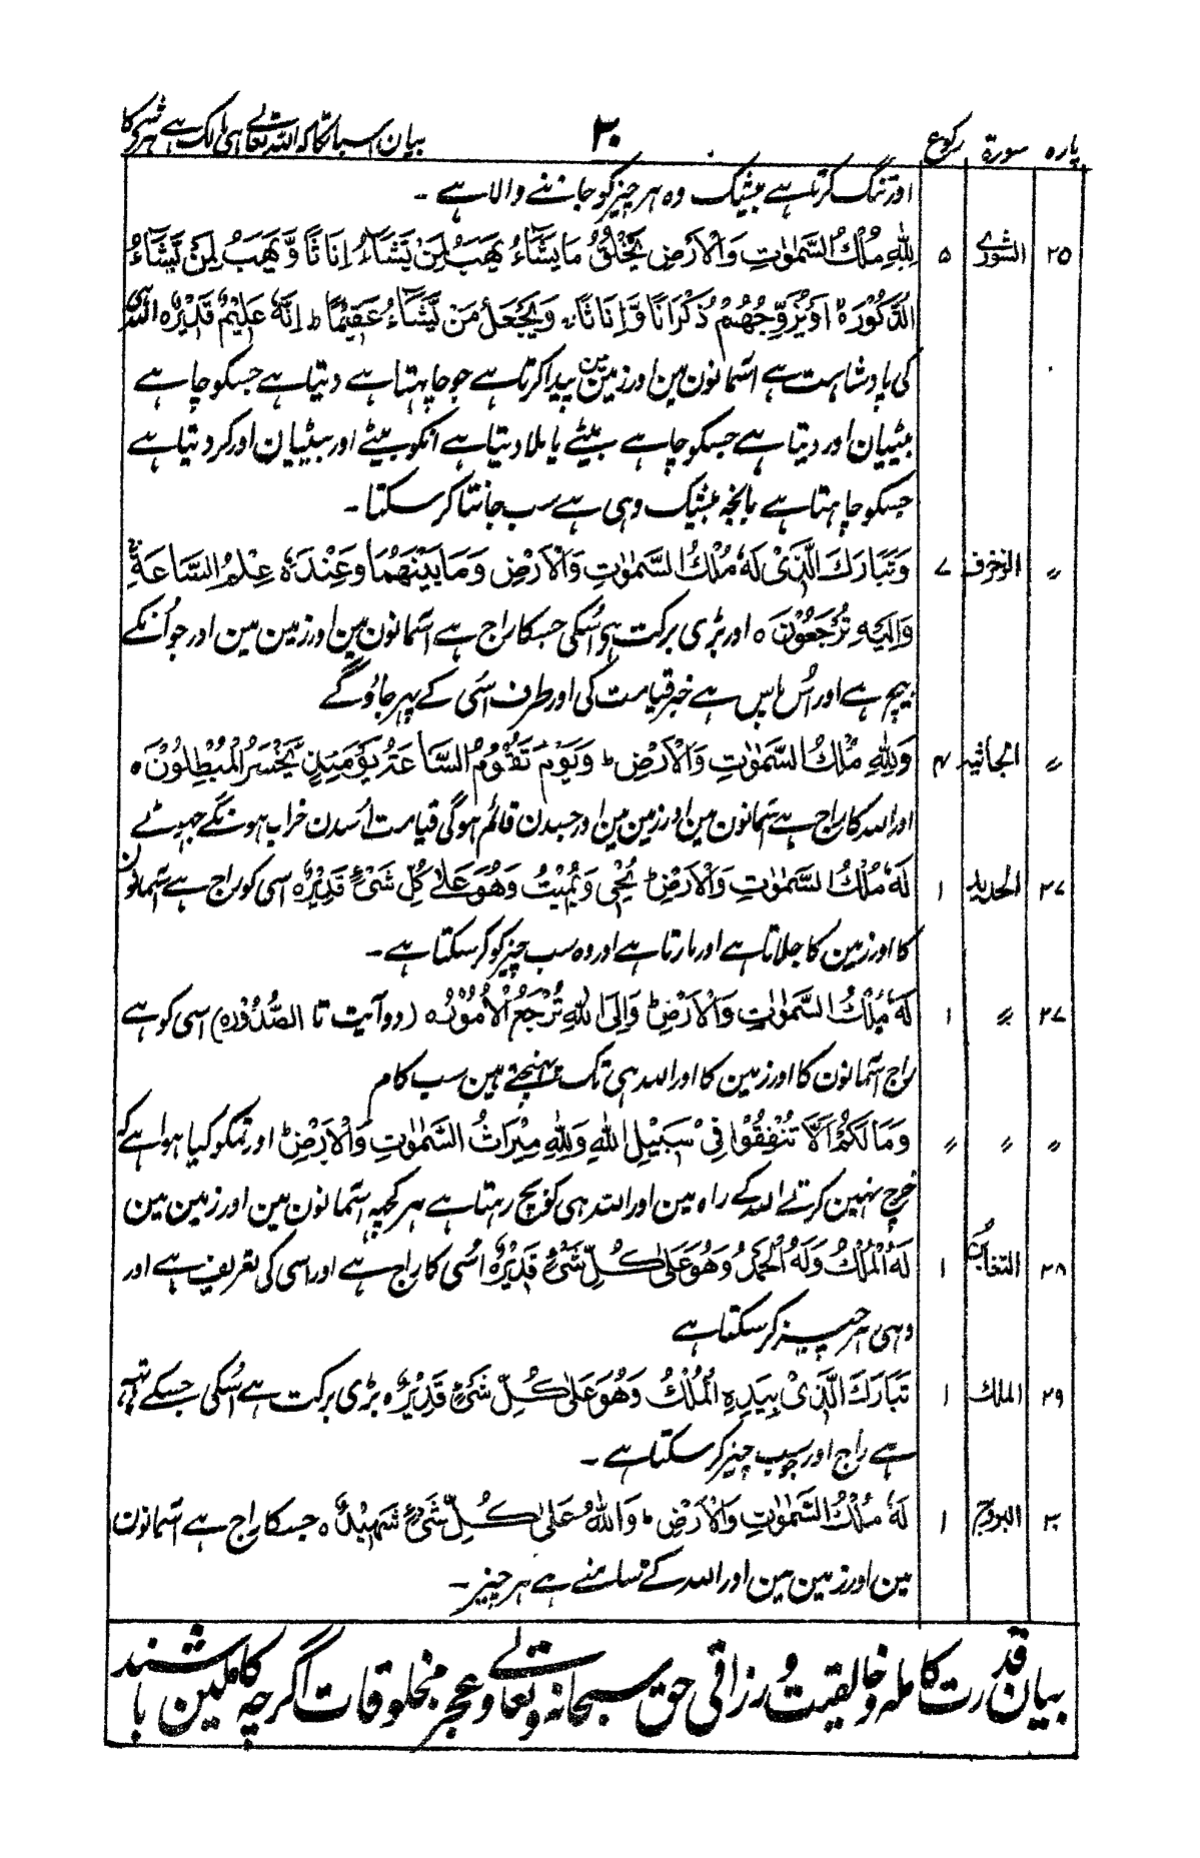 پارہ سورۃ رکوع ۳۰ بیان اس بات کا کہ اللہ تعالے ہی مالک ہے ہر شی کا
اور تنگ کرتا ہے بیشک وہ ہر چیز کو جاننے والا ہے ۔
۲۵ الشوری ۵ لِلّٰهِ مُلْكُ السَّمٰوٰتِ وَالْاَرْضِ يَخْلُقُ مَا يَشَآءُ يَهَبُ لِمَنْ يَّشَآءُ اِنَاثًا وَّيَهَبُ لِمَنْ يَّشَآءُ
الذُّكُوْرَ ہ اَوْ يُزَوِّجُهُمْ ذُكْرَانًا وَّاِنَاثًا ۔ وَيَجْعَلُ مَنْ يَّشَآءُ عَقِيْمًا ط اِنَّهٗ عَلِيْمٌ قَدِيْرٌ ہ اللہ ہی
کی پادشاہت ہے آسمانون مین اور زمین مین پیدا کرتا ہے جو چاہتا ہے دیتا ہے جسکو چاہے
بیٹیان اور دیتا ہے جسکو چاہے بیٹے یا ملا دیتا ہے انکو بیٹے اور بیٹیان اور کر دیتا ہے
جسکو چاہتا ہے بانجھ بیشک وہی ہے سب جانتا کر سکتا ۔
〃 الزخرف ۷ وَتَبَارَكَ الَّذِيْ لَهٗ مُلْكُ السَّمٰوٰتِ وَالْاَرْضِ وَمَا بَيْنَهُمَا وَعِنْدَهٗ عِلْمُ السَّاعَةِ ج
وَاِلَيْهِ تُرْجَعُوْنَ ہ اور بڑی برکت ہو اُسکی جسکا راج ہے آسمانون مین اور زمین مین اور جو اُنکے
بیچ ہے اور اُس پاس ہے خبر قیامت کی اور طرف اسی کے پہر جاؤگے
〃 الجاثیہ ۴ وَلِلّٰهِ مُلْكُ السَّمٰوٰتِ وَالْاَرْضِ ط وَيَوْمَ تَقُوْمُ السَّاعَةُ يَوْمَئِذٍ يَّخْسَرُ الْمُبْطِلُوْنَ ہ
اور اللہ کا راج ہے آسمانون مین اور زمین مین اور جسدن قائم ہوگی قیامت اُسدن خراب ہونگے جہوٹے
۲۷ الحدید ۱ لَهٗ مُلْكُ السَّمٰوٰتِ وَالْاَرْضِ ج يُحْيٖ وَيُمِيْتُ وَهُوَ عَلٰى كُلِّ شَيْءٍ قَدِيْرٌ ہ اسی کو راج ہے آسمانون
کا اور زمین کا جلاتا ہے اور مارتا ہے اور وہ سب چیز کو کر سکتا ہے ۔
۲۷ 〃 ۱ لَهٗ مُلْكُ السَّمٰوٰتِ وَالْاَرْضِ ط وَاِلَى اللّٰهِ تُرْجَعُ الْاُمُوْرُ ہ (دو آیت تا الصُّدُوْرِ ہ) اسی کو ہے
راج آسمانون کا اور زمین کا اور اللہ ہی تک پہنچتے ہین سب کام
〃 〃 〃 وَمَا لَكُمْ اَلَّا تُنْفِقُوْا فِيْ سَبِيْلِ اللّٰهِ وَلِلّٰهِ مِيْرَاثُ السَّمٰوٰتِ وَالْاَرْضِ ط اور تمکو کیا ہوا ہے کہ
خرچ نہین کرتے اللہ کے راہ مین اور اللہ ہی کو بچ رہتا ہے ہر کچہہ آسمانون مین اور زمین مین
۲۸ التغابن ۱ لَهُ الْمُلْكُ وَلَهُ الْحَمْدُ وَهُوَ عَلٰى كُلِّ شَيْءٍ قَدِيْرٌ ہ اُسی کا راج ہے اور اسی کی تعریف ہے اور
وہی ہر چیز کر سکتا ہے
۲۹ الملك ۱ تَبَارَكَ الَّذِيْ بِيَدِهِ الْمُلْكُ وَهُوَ عَلٰى كُلِّ شَيْءٍ قَدِيْرٌ ہ بڑی برکت ہے اُسکی جسکے
ہے راج اور سب چیز کر سکتا ہے ۔
۳۰ البروج ۱ لَهٗ مُلْكُ السَّمٰوٰتِ وَالْاَرْضِ ط وَاللّٰهُ عَلٰى كُلِّ شَيْءٍ شَهِيْدٌ ہ جسکا راج ہے آسمانون
مین اور زمین مین اور اللہ کے سامنے ہے ہر چیز ۔
بیان قدرت کاملہ و خالقیت و رزاقی حق سبحانہ و تعالے و عجز مخلوقات اگرچہ کاملین باشند